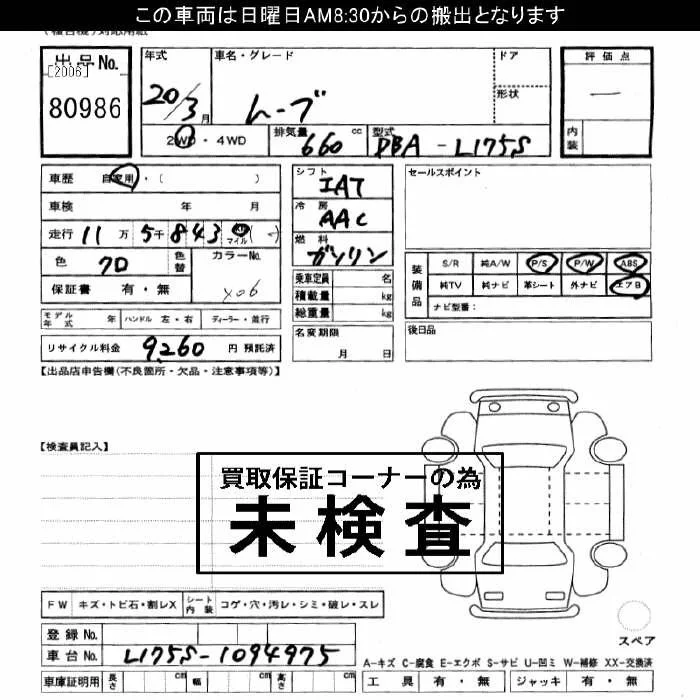 この車両は日曜日AM8:30からの搬出となります
出品No.
[2006]
80986
年式 20/3月
車名・グレード ムーブ
ドア
形状
評価点
ー
内装
2WD・4WD
排気量 660cc
型式 DBA-L175S
車歴 自家用・( )
車検 年 月
走行 11万5千843 マイル
色 クロ
色替
カラーNo. X06
保証書 有・無
モデル年式 年
ハンドル 左・右
ディーラー・並行
リサイクル料金 9,260円 預託済
シフト IAT
冷房 AAC
燃料 ガソリン
乗車定員 名
積載量 kg
総重量 kg
名変期限
月 日
セールスポイント
装備品
S/R 純A/W P/S P/W ABS
純TV 純ナビ 革シート 外ナビ エアB
ナビ型番:
後日品
【出品店申告欄(不良箇所・欠品・注意事項等)】
【検査員記入】
買取保証コーナーの為
未検査
FW キズ・トビ石・割レX
シート内装 コゲ・穴・汚レ・シミ・破レ・スレ
登録No.
車台No. L175S-1094975
車庫証明用 長さ cm 幅 cm 高さ cm
スペア
A-キズ C-腐食 E-エクボ S-サビ U-凹ミ W-補修 XX-交換済
工具 有・無 ジャッキ 有・無